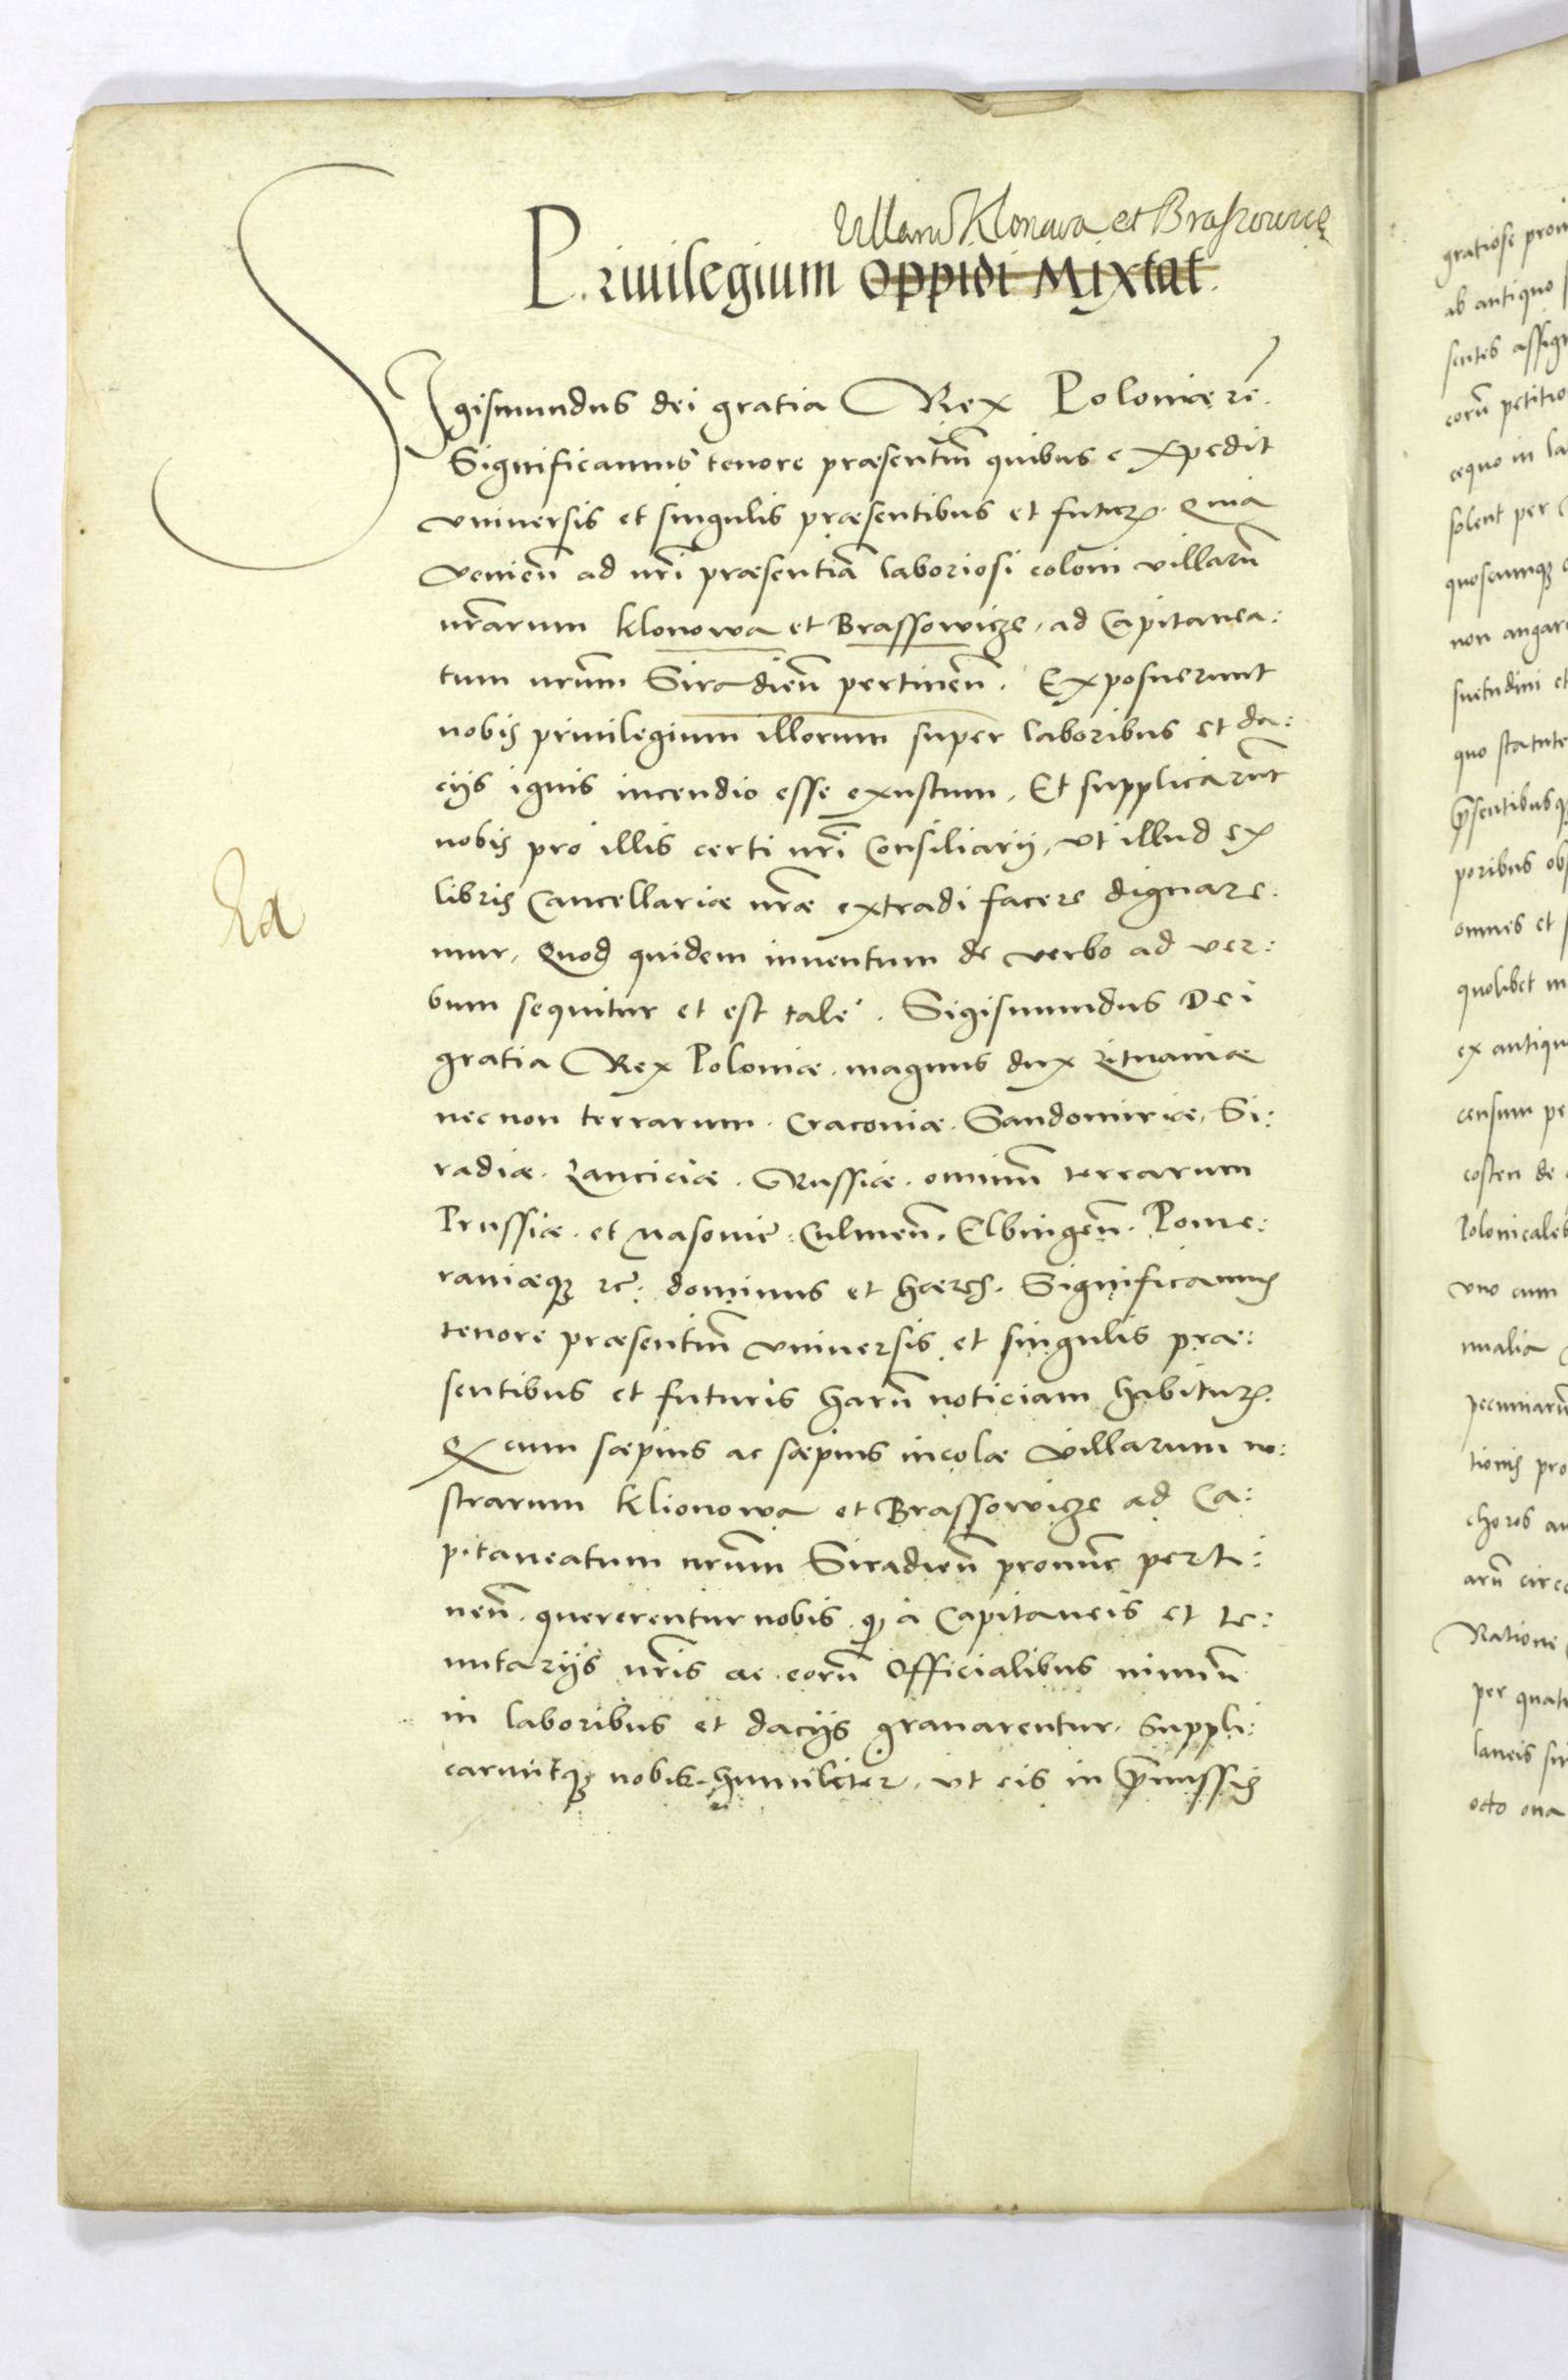 Villarū Klonova et Braszowice
Priuilegium oppidi Mixtat.
Sigismundus dei gratia Rex Poloniæ rc̄.
Significamus tenore præsentiū quibus expedit
vniuersis et singulis præsentibus et futurꝝ. Quia
venien̄ ad nr̄i præsentiā laboriosi coloni villarū
nr̄arum Klonowa et Brassowicze, ad Capitanea:
tum nr̄um Siradien̄ pertinen̄. Exposuerunt
nobis priuilegium illorum super laboribus et da:
cijs ignis incendio esse exustum, Et supplicarūt
nobis pro illis certi nr̄i Consiliarij, vt illud ex
libris Cancellariæ nr̄æ extradi facere dignare:
mur, Quod quidem inuentum de verbo ad ver:
bum sequitur et est tale. Sigismundus Dei
gratia Rex Poloniæ. magnus dux Lituaniæ
nec non terrarum. Cracouiæ. Sandomiriæ, Si:
radiæ. Lanciciæ. Russiæ. omniū terrarum
Prussiæ. et Masouie. Culmen̄. Elbingen̄. Pome:
raniæqꝫ rc̄: dominus et hæres. Significamus
tenore præsentiū vniuersis et singulis præ:
sentibus et futuris harū noticiam habiturꝝ.
Qꝫ cum sæpius ac sæpius incolæ villarum no:
strarum Klionowa et Brassowicze ad Ca:
pitaneatum nr̄um Siradien̄ pronūc perti:
nen̄. quererentur nobis. qꝫ à Capitaneis et te:
nutarijs nr̄is ac eorū Officialibus nimiū
in laboribus et dacijs grauarentur. Suppli:
caruntqꝫ nobis humiliter, vt eis in p̄missis
La
gratiose
ab antiquo
sentes
eorū petitio
æquo in la
solent per
quoscunqꝫ
non angar
suetudini et
quo statute
p̄sentibus
poribus
omnes et
quolibet in
ex antiqu
censum pe
costen de
Polonicales
vno cum
nualia
pecuniarū
tionis pro
choros au
arū circ
Ratione
per quat
laneis
octo oua